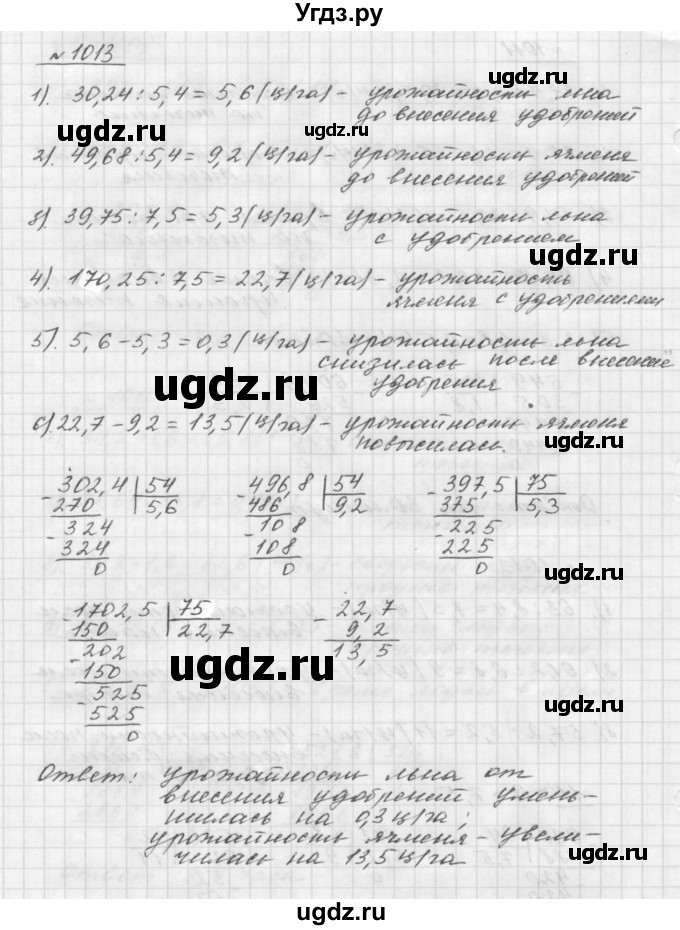 Угдз.ру
№ 1013
1). 30,24 : 5,4 = 5,6 (ц/га) - урожайность льна
до внесения удобрений
ugdz.ru ugdz.ru
2). 49,68 : 5,4 = 9,2 (ц/га) - урожайность ячменя
до внесения удобрений
3). 39,75 : 7,5 = 5,3 (ц/га) - урожайность льна
с удобрением
ugdz.ru ugdz.ru
4). 170,25 : 7,5 = 22,7 (ц/га) - урожайность
ячменя с удобрениями
5). 5,6 - 5,3 = 0,3 (ц/га) - урожайность льна
снизилась после внесение
удобрения
ugdz.ru ugdz.ru
6). 22,7 - 9,2 = 13,5 (ц/га) - урожайность ячменя
повысилась.
- 302,4 | 54 - 496,8 | 54 - 397,5 | 75
270 5,6 486 9,2 375 5,3
- 324 - 108 - 225
324 108 225
0 0 0
ugdz.ru ugdz.ru
- 1702,5 | 75 - 22,7
150 22,7 9,2
- 202 13,5
150
- 525
525
0
ugdz.ru ugdz.ru
Ответ: урожайность льна от
внесения удобрений умень-
шилась на 0,3 ц/га;
урожайность ячменя - увели-
чилась на 13,5 ц/га
ugdz.ru ugdz.ru
ugdz.ru